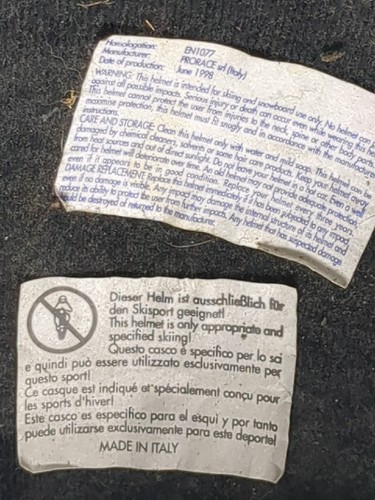 Homologation: EN1077
Manufacturer: PRORACE srl (Italy)
Date of production: June 1998
WARNING: This helmet is intended for skiing and snowboard use only. No helmet can
against all possible impacts. Serious injury or death can occur even while wearing this
This helmet cannot protect the user from injuries to the neck, spine or other body parts.
maximize protection, this helmet must fit snugly and in accordance with the manufacturer
instructions.
CARE AND STORAGE: Clean this helmet only with water and mild soap. This helmet can be
damaged by chemical cleaners, solvents or some hair care products. Keep your helmet away
from heat sources and out of direct sunlight. Do not leave your helmet in a hot car. Even a well
cared for helmet will deteriorate over time. An old helmet may not provide adequate protection,
even if it appears to be in good condition. Replace your helmet every three years.
DAMAGE REPLACEMENT: Replace this helmet immediately if it has been subjected to any impact
even if no damage is visible. Any impact may damage the internal structure of its helmet and
reduce its ability to protect the user from further impacts. Any helmet that has suspected damage
should be destroyed or returned to the manufacturer.
Dieser Helm ist ausschließlich für
den Skisport geeignet!
This helmet is only appropriate and
specified skiing!
Questo casco è specifico per lo sci
e quindi può essere utilizzato esclusivamente per
questo sport!
Ce casque est indiqué et spécialement conçu pour
les sports d'hiver!
Este casco es especifico para el esqui y por tanto
puede utilizarse exclusivamente para este deporte!
MADE IN ITALY